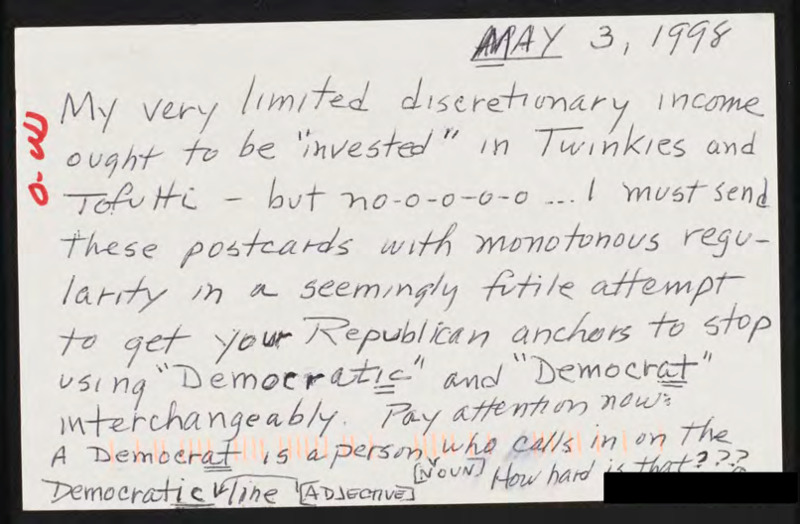 MAY 3, 1998
My very limited discretionary income
ought to be "invested" in Twinkies and
Tofutti - but no-o-o-o-o ... I must send
these postcards with monotonous regu-
larity in a seemingly futile attempt
to get your Republican anchors to stop
using "Democratic" and "Democrat"
interchangeably. Pay attention now:
A Democrat is a person who calls in on the
Democratic line [ADJECTIVE] [NOUN] How hard is that???